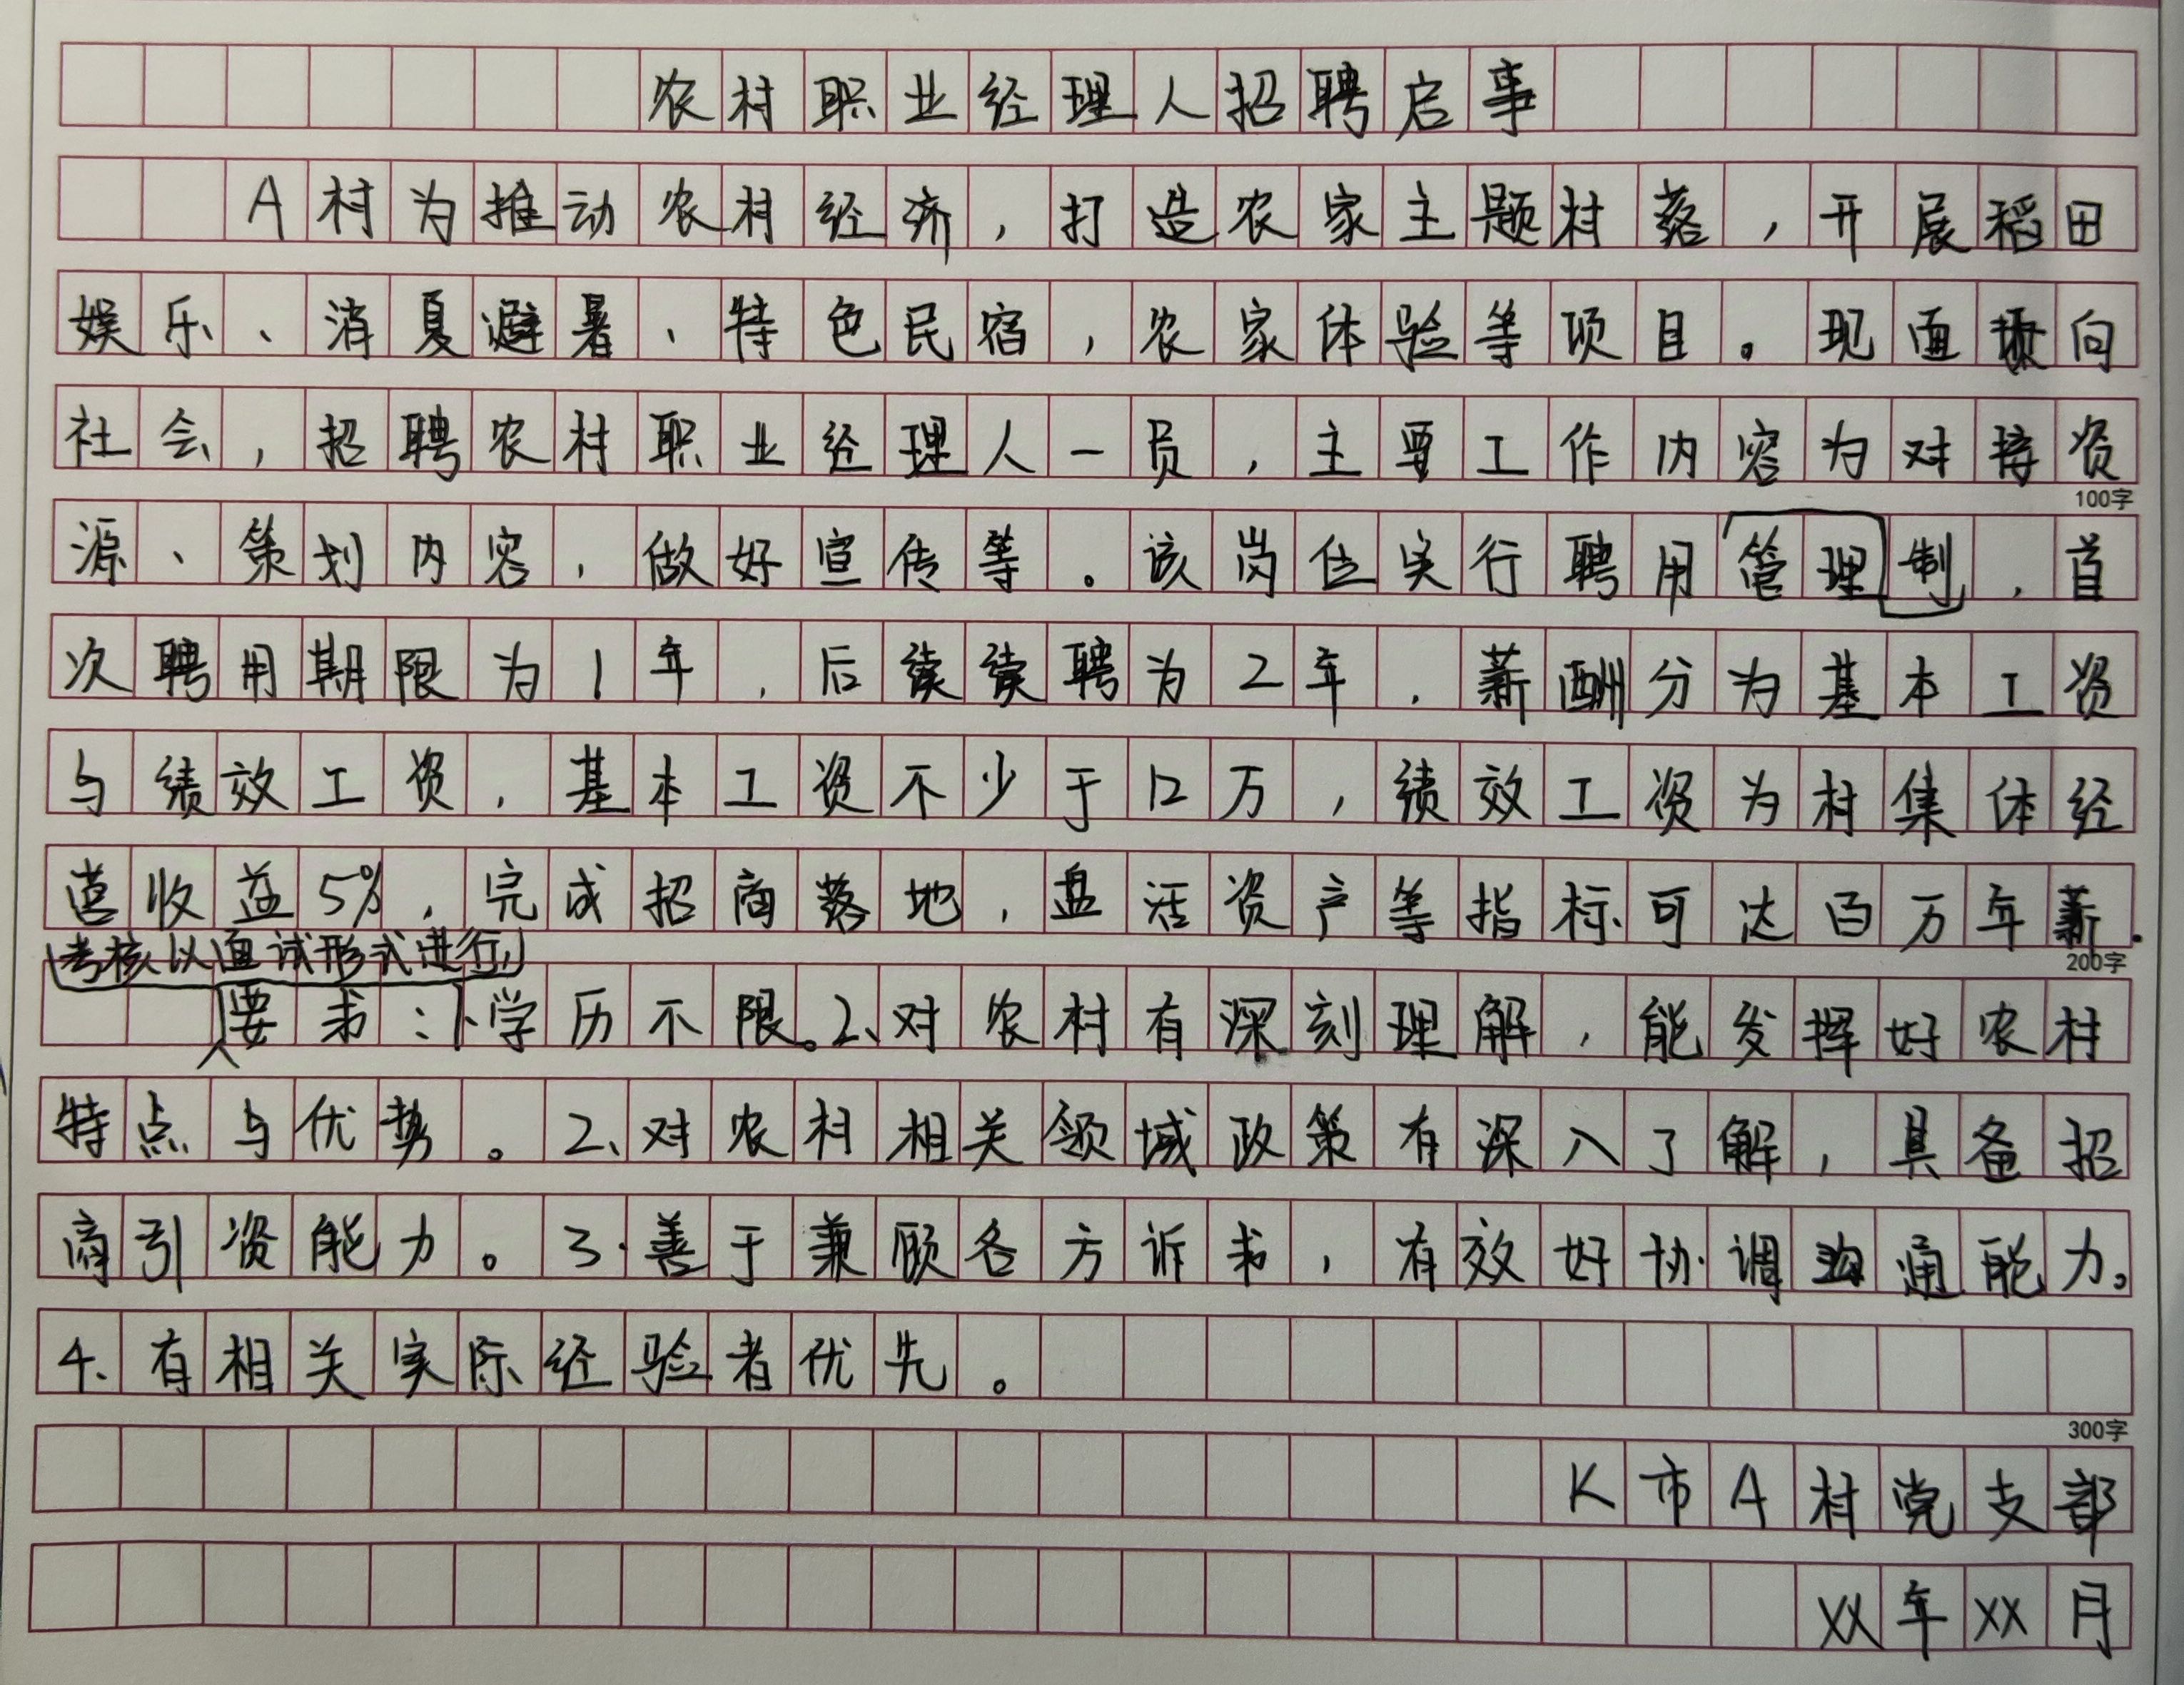 农村职业经理人招聘启事
A村为推动农村经济，打造农家主题村落，开展稻田
娱乐、消夏避暑、特色民宿，农家体验等项目。现面向
社会，招聘农村职业经理人一员，主要工作内容为对接资
100字
源、策划内容，做好宣传等。该岗位实行聘用制管理，首
次聘用期限为1年，后续续聘为2年，薪酬分为基本工资
与绩效工资，基本工资不少于12万，绩效工资为村集体经
营收益5%，完成招商落地，盘活资产等指标可达百万年薪.
200字
考核以面试形式进行，
要求：1、学历不限。2、对农村有深刻理解，能发挥好农村
特点与优势。2、对农村相关领域政策有深入了解，具备招
商引资能力。3.善于兼顾各方诉求，有效好协调沟通能力。
4、有相关实际经验者优先。
300字
K市A村党支部
XX年XX月